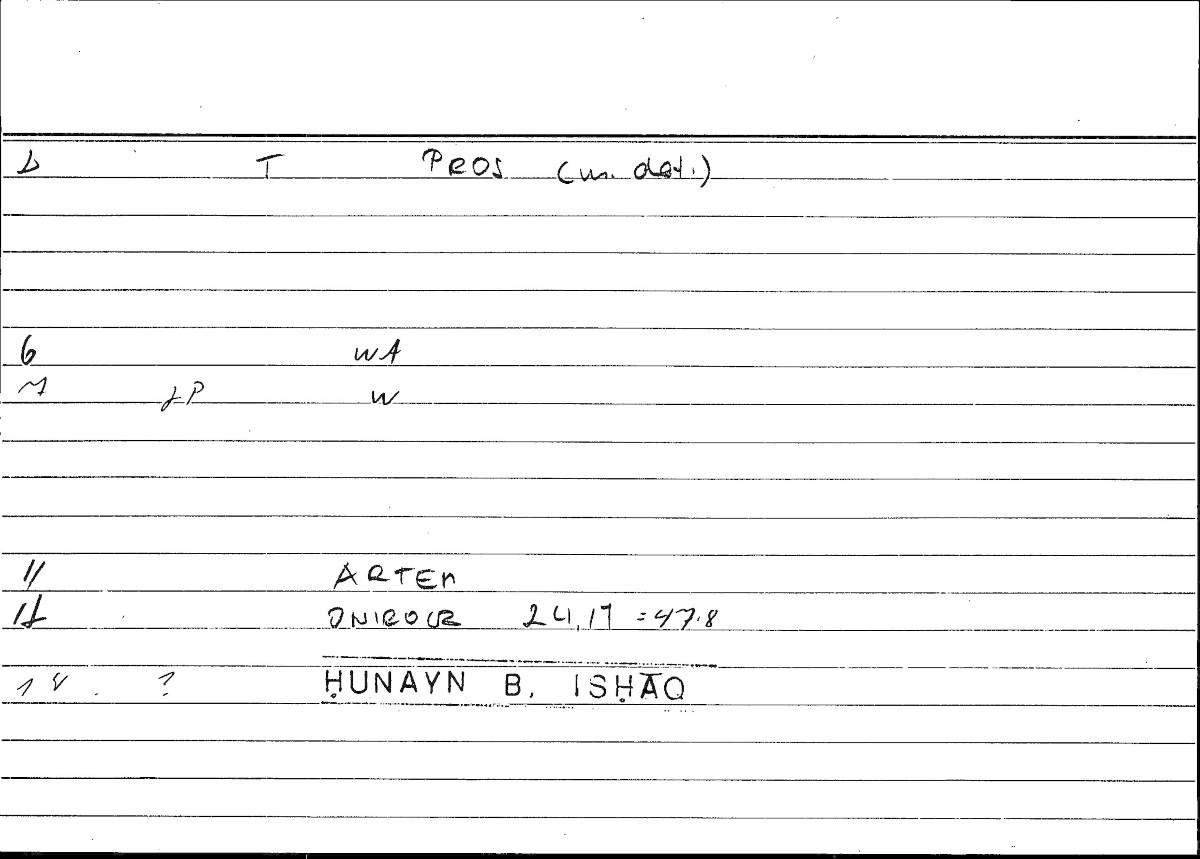 D T PROS (m. dat.)
6 WA
7 LP W
11 ARTEM
12 ONIROCR 24,17 = 47.8
18. ? ḤUNAYN B. ISḤĀQ